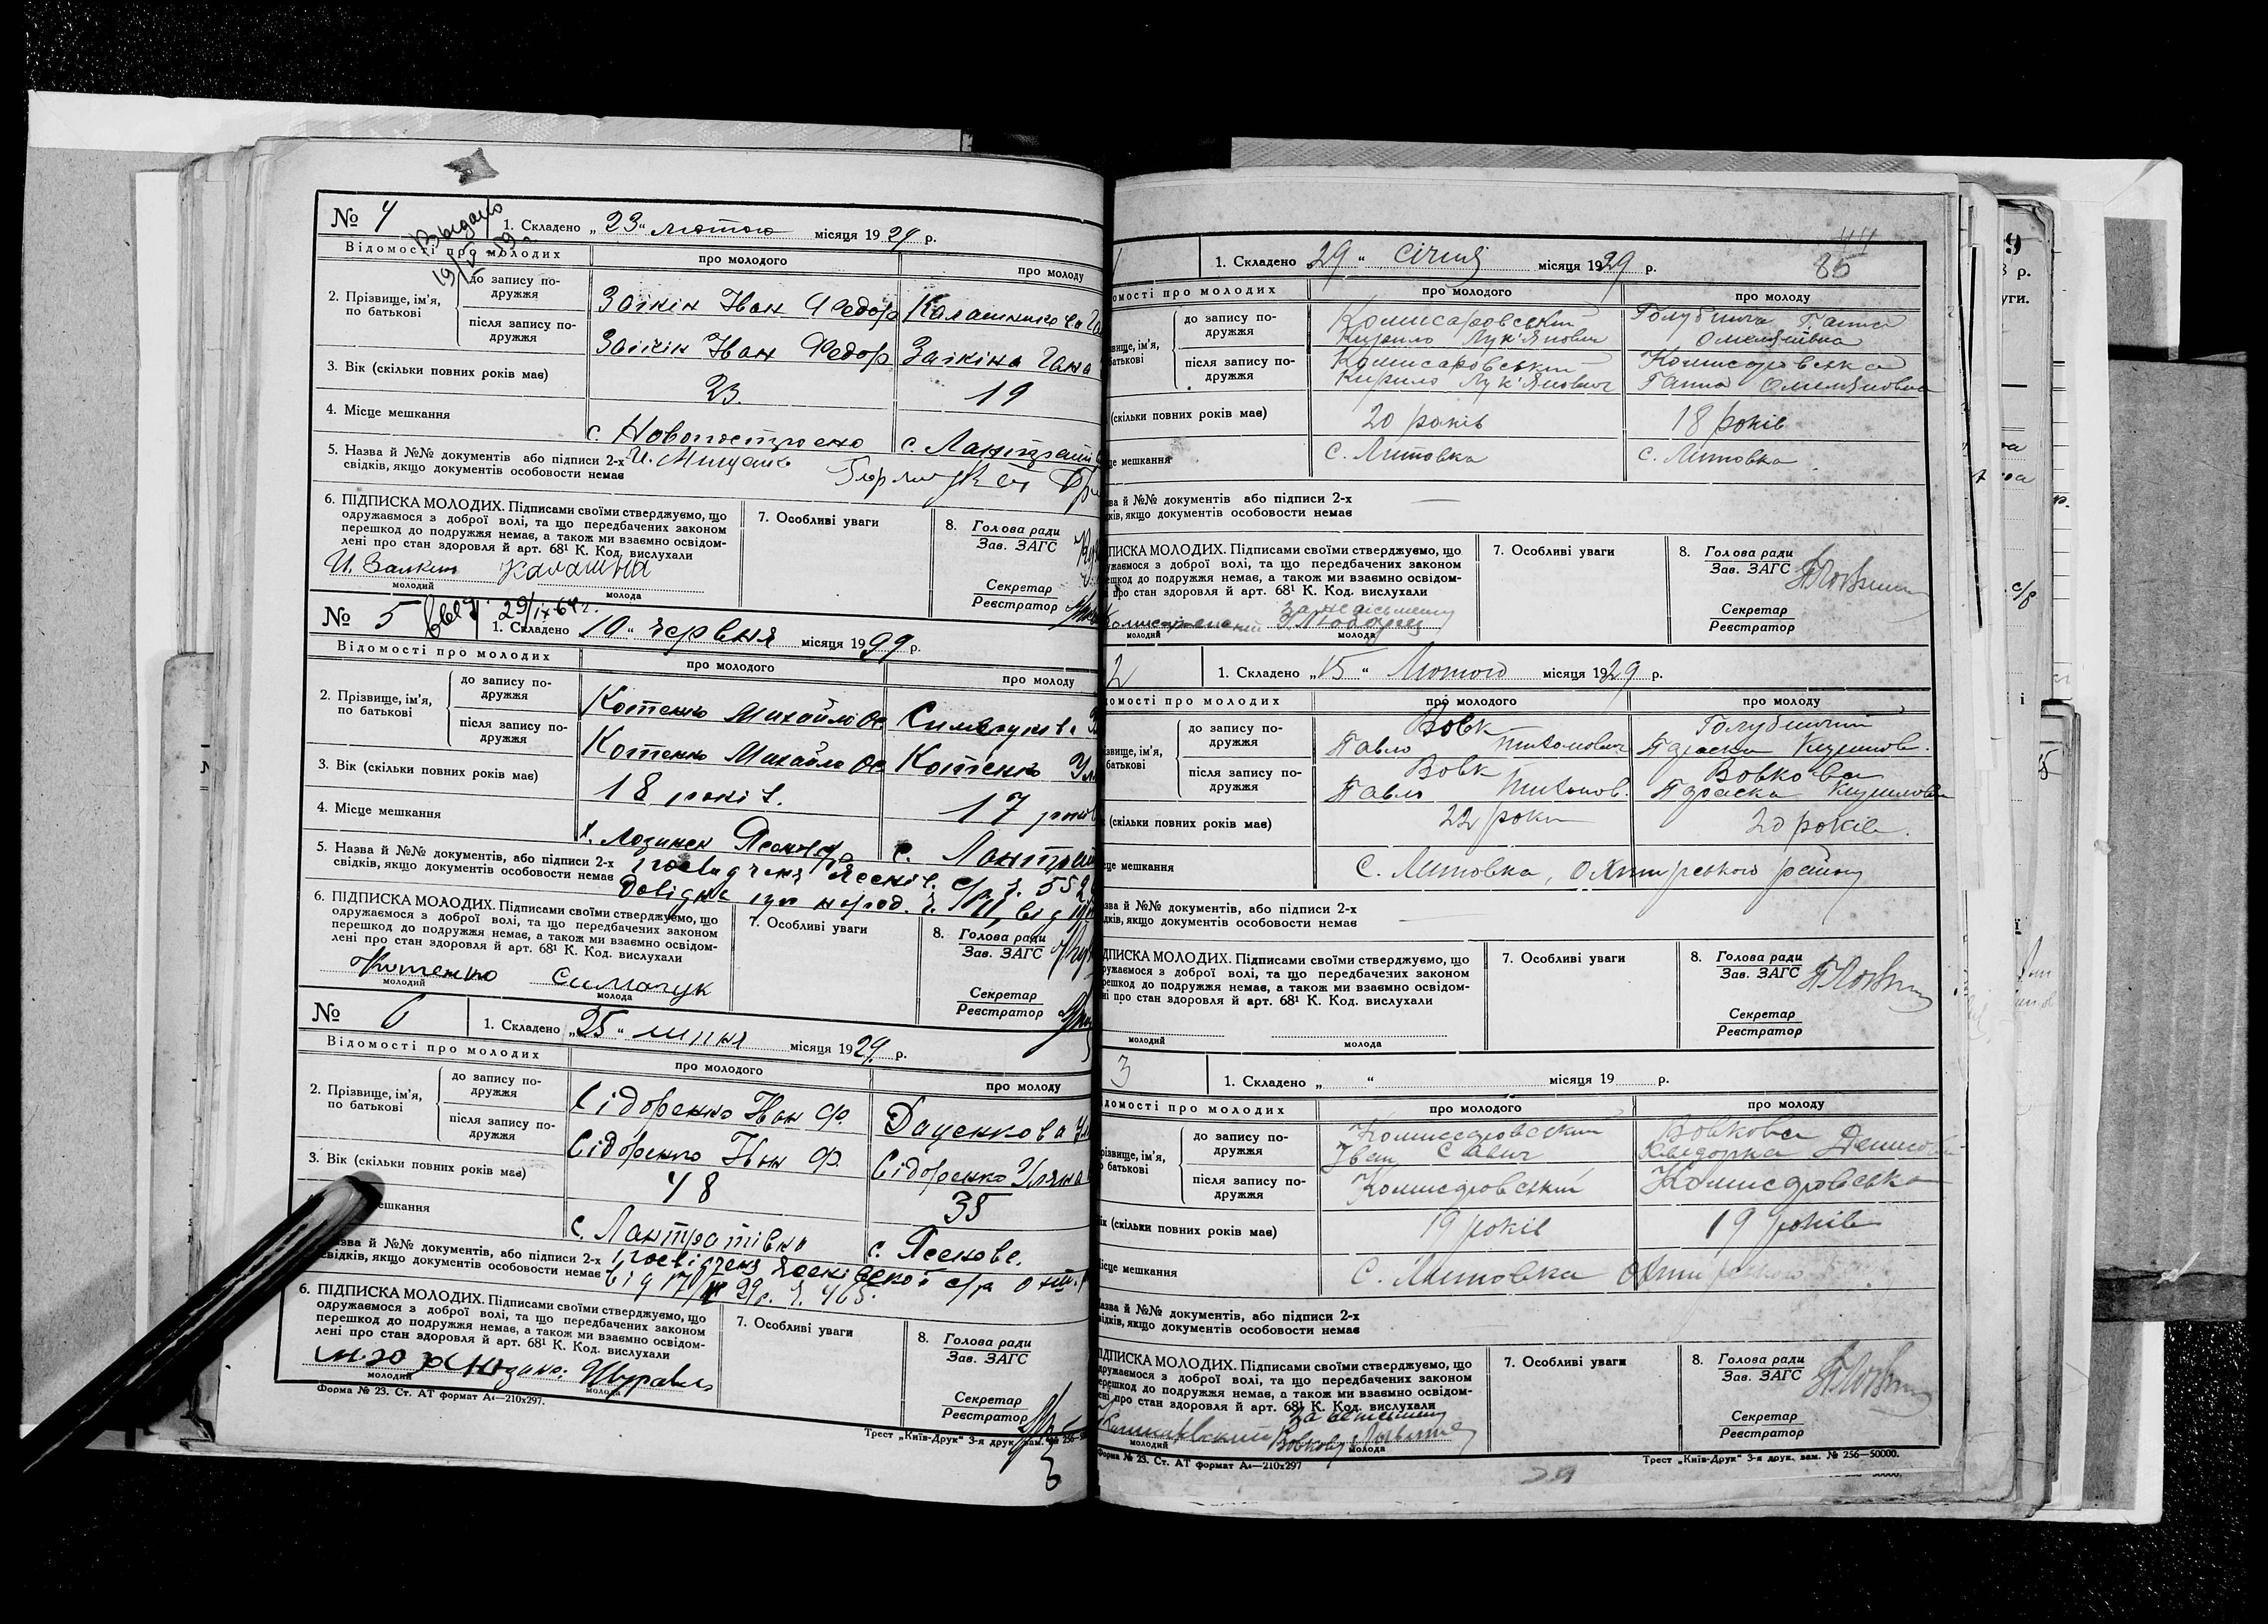 № 4
Выдано
1. Складено „23“ лютого місяця 1929 р.
Відомості про молодих
про молодого
про молоду
2. Прізвище, ім'я, по батькові
до запису подружжя
Заікін Іван Федор
Калашнікова
після запису подружжя
Заікін Іван Федор
Заікіна Гана
3. Вік (скільки повних років має)
23.
19
4. Місце мешкання
с. Новопостроено
с. Лантраті
5. Назва й №№ документів або підписи 2-х
свідків, якщо документів особовости немає
6. ПІДПИСКА МОЛОДИХ. Підписами своїми стверджуємо, що
одружаємося з доброї волі, та що передбачених законом
перешкод до подружжя немає, а також ми взаємно освідом-
лені про стан здоровля й арт. 68¹ К. Код. вислухали
молодий
молода
7. Особливі уваги
8. Голова ради
Зав. ЗАГС
Секретар
Реєстратор
№ 5
29/IX 64 г.
1. Складено „10“ червня місяця 1929 р.
Відомості про молодих
про молодого
про молоду
2. Прізвище, ім'я, по батькові
до запису подружжя
Котенко Михайло Ос
після запису подружжя
Котенко Михайло Ос
Котенко Ул
3. Вік (скільки повних років має)
18 років.
17 років
4. Місце мешкання
с. Лантра
5. Назва й №№ документів, або підписи 2-х
свідків, якщо документів особовости немає
6. ПІДПИСКА МОЛОДИХ. Підписами своїми стверджуємо, що
одружаємося з доброї волі, та що передбачених законом
перешкод до подружжя немає, а також ми взаємно освідом-
лені про стан здоровля й арт. 68¹ К. Код. вислухали
Котенко Симагук
молодий
молода
7. Особливі уваги
8. Голова ради
Зав. ЗАГС
Секретар
Реєстратор
№ 6
1. Складено „25“ липня місяця 1929 р.
Відомості про молодих
про молодого
про молоду
2. Прізвище, ім'я, по батькові
до запису подружжя
Сідоренко Іван Ф.
Даценкова
після запису подружжя
Сідоренко Іван Ф.
Сідоренко Уляна
3. Вік (скільки повних років має)
48
35
мешкання
с. Лантратівка
с. Ясенове.
зва й №№ документів, або підписи 2-х
свідків, якщо документів особовости немає
від 17/ 29р. Ч. 465.
6. ПІДПИСКА МОЛОДИХ. Підписами своїми стверджуємо, що
одружаємося з доброї волі, та що передбачених законом
перешкод до подружжя немає, а також ми взаємно освідом-
лені про стан здоровля й арт. 68¹ К. Код. вислухали
молодий
молода
7. Особливі уваги
8. Голова ради
Зав. ЗАГС
Секретар
Реєстратор
Форма № 23. Ст. АТ формат А4—210х297.
Трест „Київ-Друк“ 3-я друк. зам. № 256-5
44
85
1. Складено „29“ січня місяця 1929 р.
омості про молодих
про молодого
про молоду
звище, ім'я,
батькові
до запису подружжя
Комисаровський
Кирило Лук'янович
Голубнича Ганна
Омелянівна
після запису подружжя
Комисаровський
Кирило Лук'янович
Комисаровська
Ганна Омеляновна
(скільки повних років має)
20 років
18 років
це мешкання
с. Литовка
с. Литовка
зва й №№ документів або підписи 2-х
ків, якщо документів особовости немає
ПИСКА МОЛОДИХ. Підписами своїми стверджуємо, що
ужаємося з доброї волі, та що передбачених законом
ешкод до подружжя немає, а також ми взаємно освідом-
і про стан здоровля й арт. 68¹ К. Код. вислухали
молодий
молода
7. Особливі уваги
8. Голова ради
Зав. ЗАГС
Секретар
Реєстратор
2
1. Складено „15“ Лютого місяця 1929 р.
омості про молодих
про молодого
про молоду
звище, ім'я,
батькові
до запису подружжя
Вовк
Павло Тихонович
Голубничий
Параска Кузьмов.
після запису подружжя
Вовк
Павло Тихонов.
Вовкова
Параска Кузьмовна
(скільки повних років має)
22 роки
20 років.
це мешкання
с. Литовка, Охтирського району
зва й №№ документів, або підписи 2-х
ідків, якщо документів особовости немає
ДПИСКА МОЛОДИХ. Підписами своїми стверджуємо, що
ружаємося з доброї волі, та що передбачених законом
решкод до подружжя немає, а також ми взаємно освідом-
ні про стан здоровля й арт. 68¹ К. Код. вислухали
молодий
молода
7. Особливі уваги
8. Голова ради
Зав. ЗАГС
Секретар
Реєстратор
3
1. Складено „ “ місяця 19 р.
домості про молодих
про молодого
про молоду
різвище, ім'я,
батькові
до запису подружжя
Комисаровский
Іван Савич
Вовкова
Хведорка Денисов
після запису подружжя
Комисаровський
Комисаровська
ік (скільки повних років має)
19 років
19 років
ісце мешкання
с. Литовка Охтирського
Назва й №№ документів, або підписи 2-х
відків, якщо документів особовости немає
ІДПИСКА МОЛОДИХ. Підписами своїми стверджуємо, що
дружаємося з доброї волі, та що передбачених законом
ерешкод до подружжя немає, а також ми взаємно освідом-
ені про стан здоровля й арт. 68¹ К. Код. вислухали
молодий
молода
7. Особливі уваги
8. Голова ради
Зав. ЗАГС
Секретар
Реєстратор
Форма № 23. Ст. АТ формат А4—210х297
Трест „Київ-Друк“ 3-я друк. зам. № 256—50000.